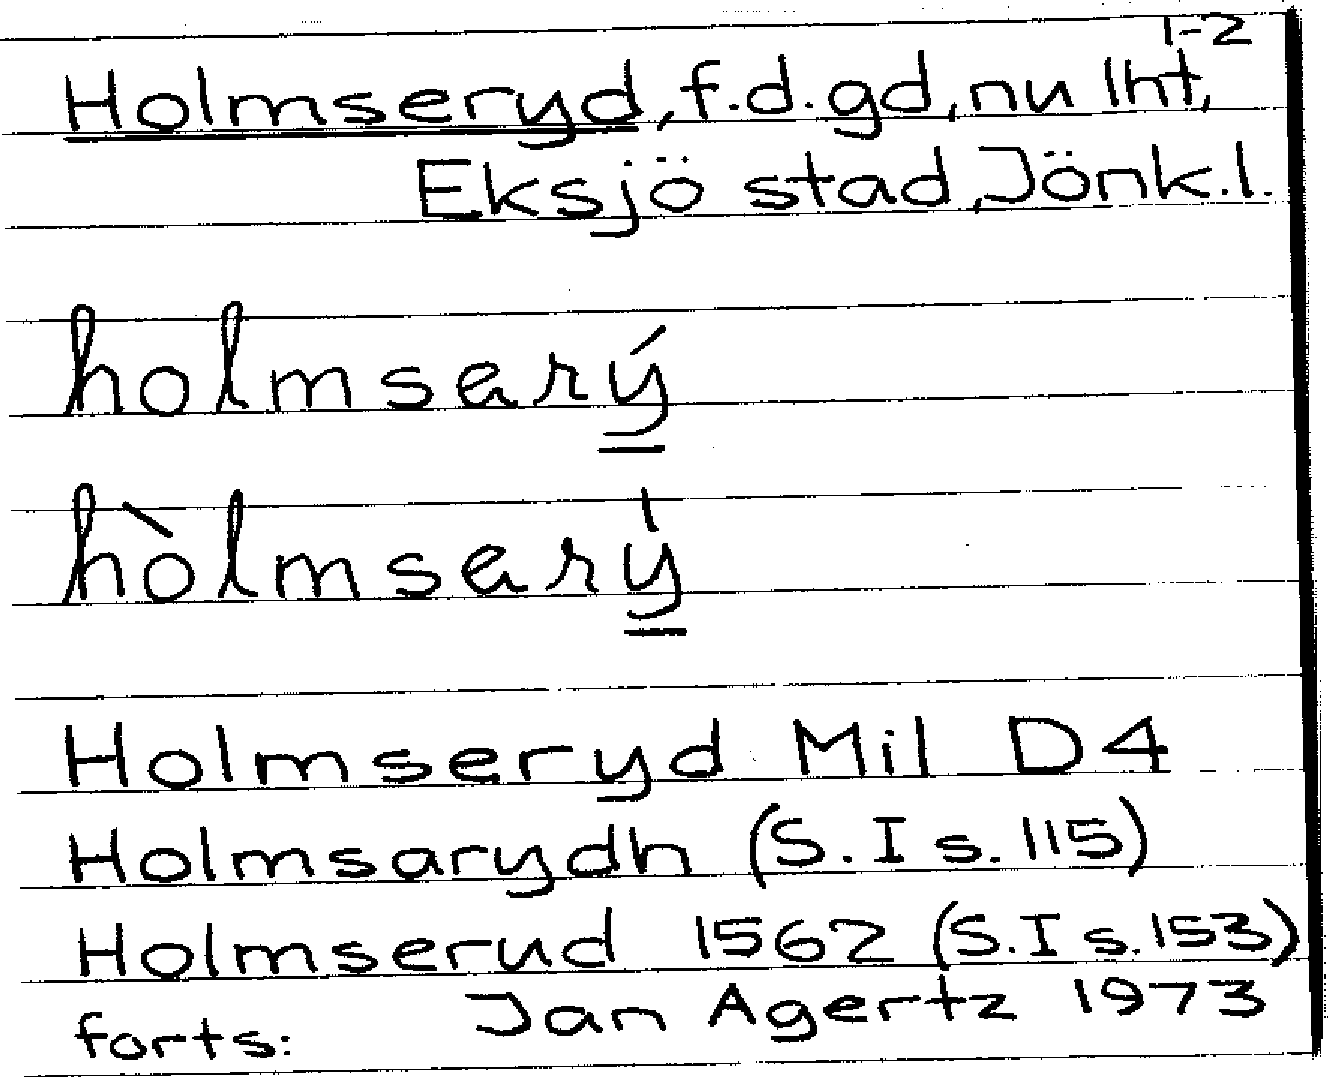 1-2
Holmseryd, f.d. gd, nu lht,
Eksjö stad, Jönk.l.
holmsarý
hòlmsarý
Holmseryd Mil D4
Holmsarydh (S. I s. 115)
Holmserud 1562 (S. I s. 153)
forts: Jan Agertz 1973